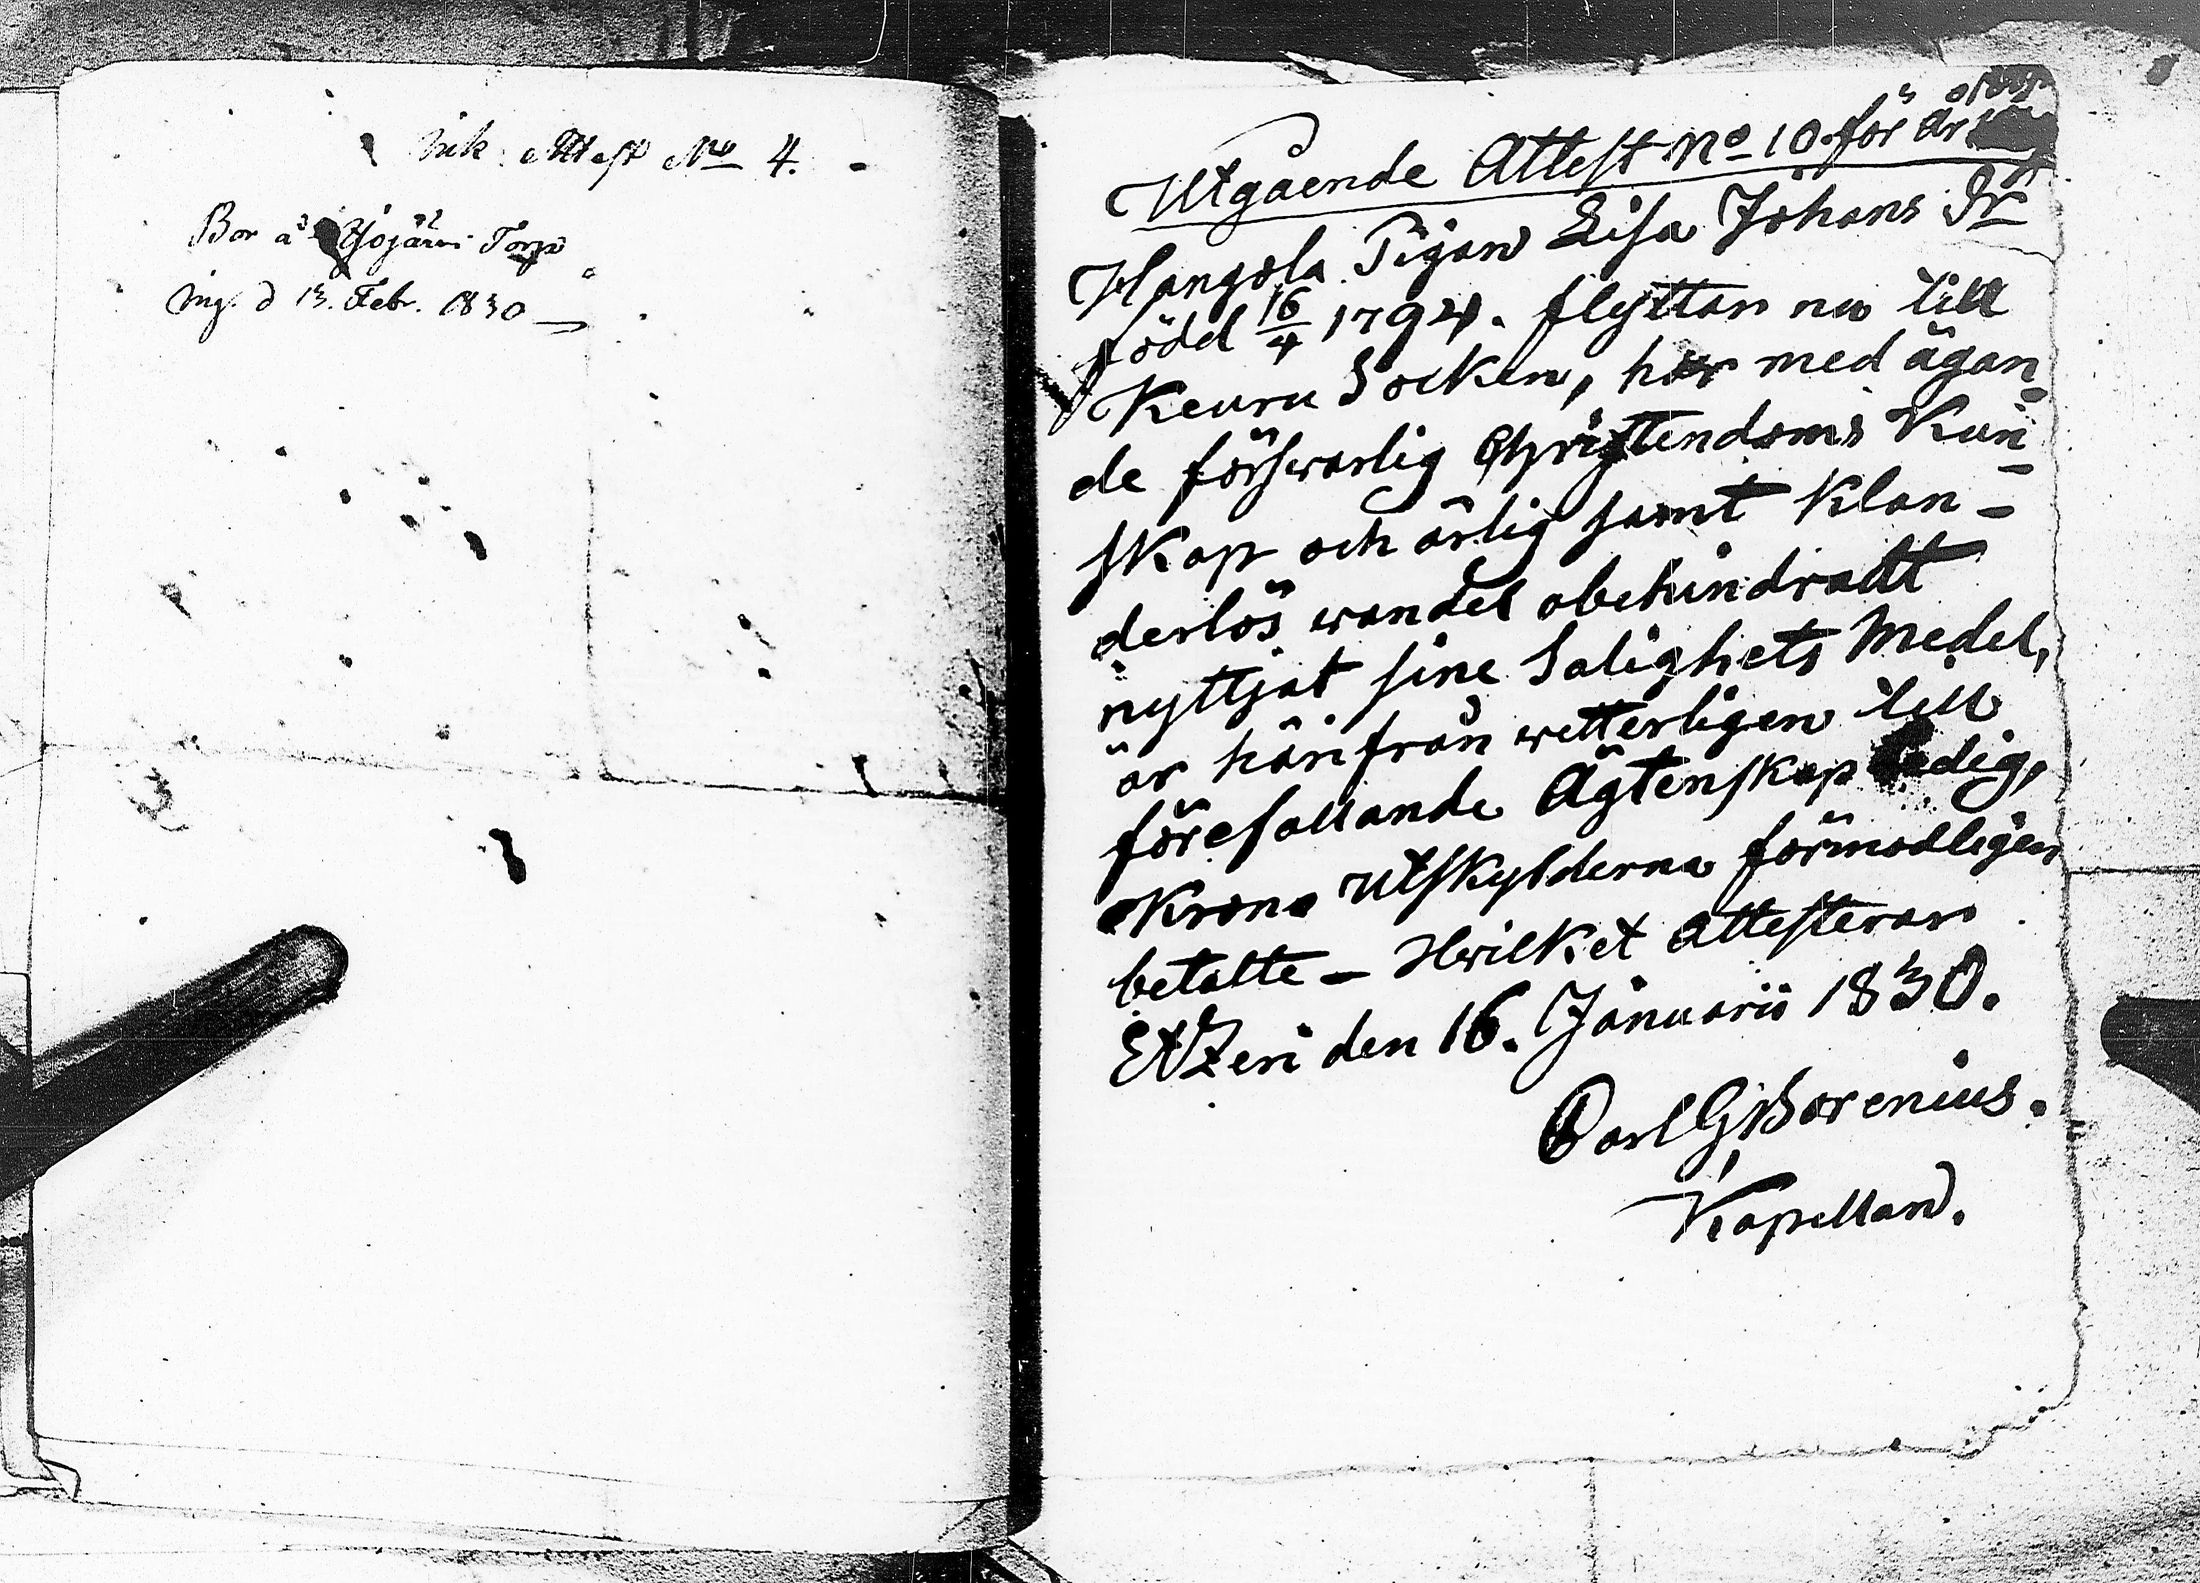 Ink. Attest No 4.
Bor å Torp
Ing. d 13. Febr. 1830
Utgående Attest No 10. för år
Hangola Pigan Lisa Johans Dr
född 16/4 1794. flyttar nu till
Keuru Socken, har med ägan
de förswarlig Christendoms Kun
skap och ärlig samt klan-
derlös wandel obehindradt
nyttjat sine Salighets Medel,
är härifrån wetterligen till
förefallande Ägtenskap Ledig,
Krono utskylderna förmodligen
betalte - Hwilket attesterar
Etzeri den 16. Januarii 1830.
Carl G Borenius.
Kapellan.